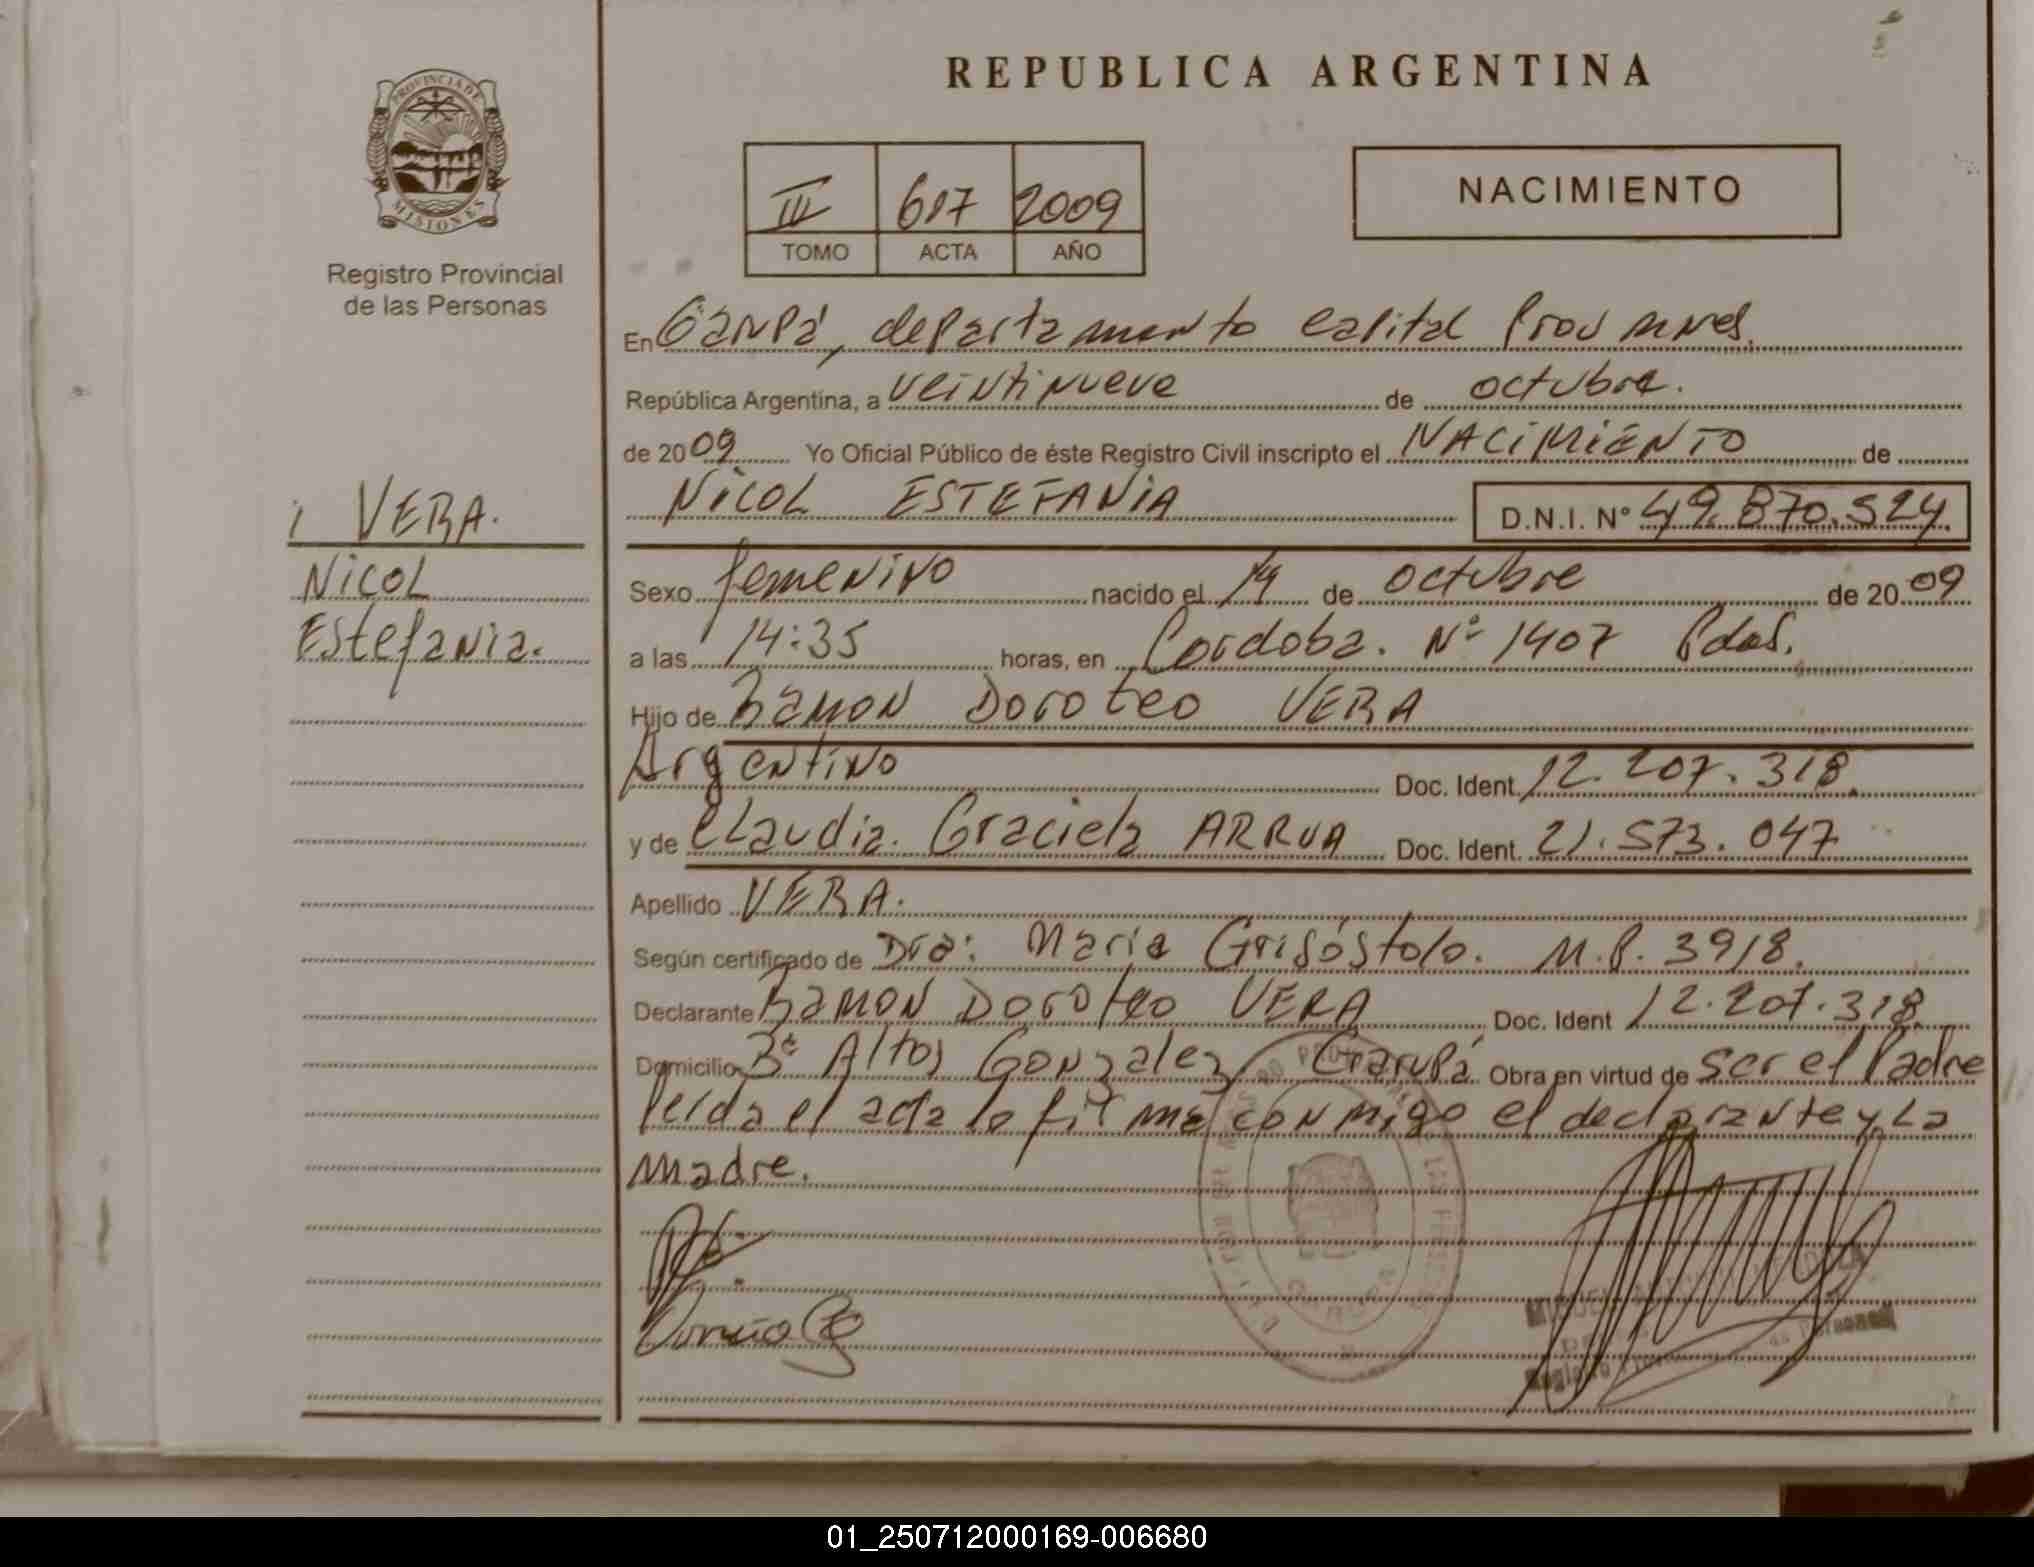 REPUBLICA ARGENTINA
PROVINCIA DE
MISIONES
Registro Provincial
de las Personas
III 617 2009
TOMO ACTA AÑO
NACIMIENTO
En Garupá, departamento capital Prov mnes.
República Argentina, a veintinueve de octubre.
de 2009 Yo Oficial Público de éste Registro Civil inscripto el NACIMIENTO de
NICOL ESTEFANIA D.N.I. N° 49.870.524
VERA.
Nicol
Estefania.
Sexo femenino nacido el 14 de octubre de 2009
a las 14:35 horas, en Cordoba. Nº 1407 Pdas.
Hijo de Ramon Doroteo VERA
Argentino Doc. Ident. 12.207.318.
y de Claudia. Graciela ARRUA Doc. Ident. 21.573.047
Apellido VERA.
Según certificado de Dra: Maria Grisóstolo. M.P. 3918.
Declarante Ramon Doroteo VERA Doc. Ident 12.207.318.
Domicilio Bº Altos Gonzalez Garupá Obra en virtud de ser el Padre
leida el acta la firma conmigo el declarante y La
madre.
01_250712000169-006680